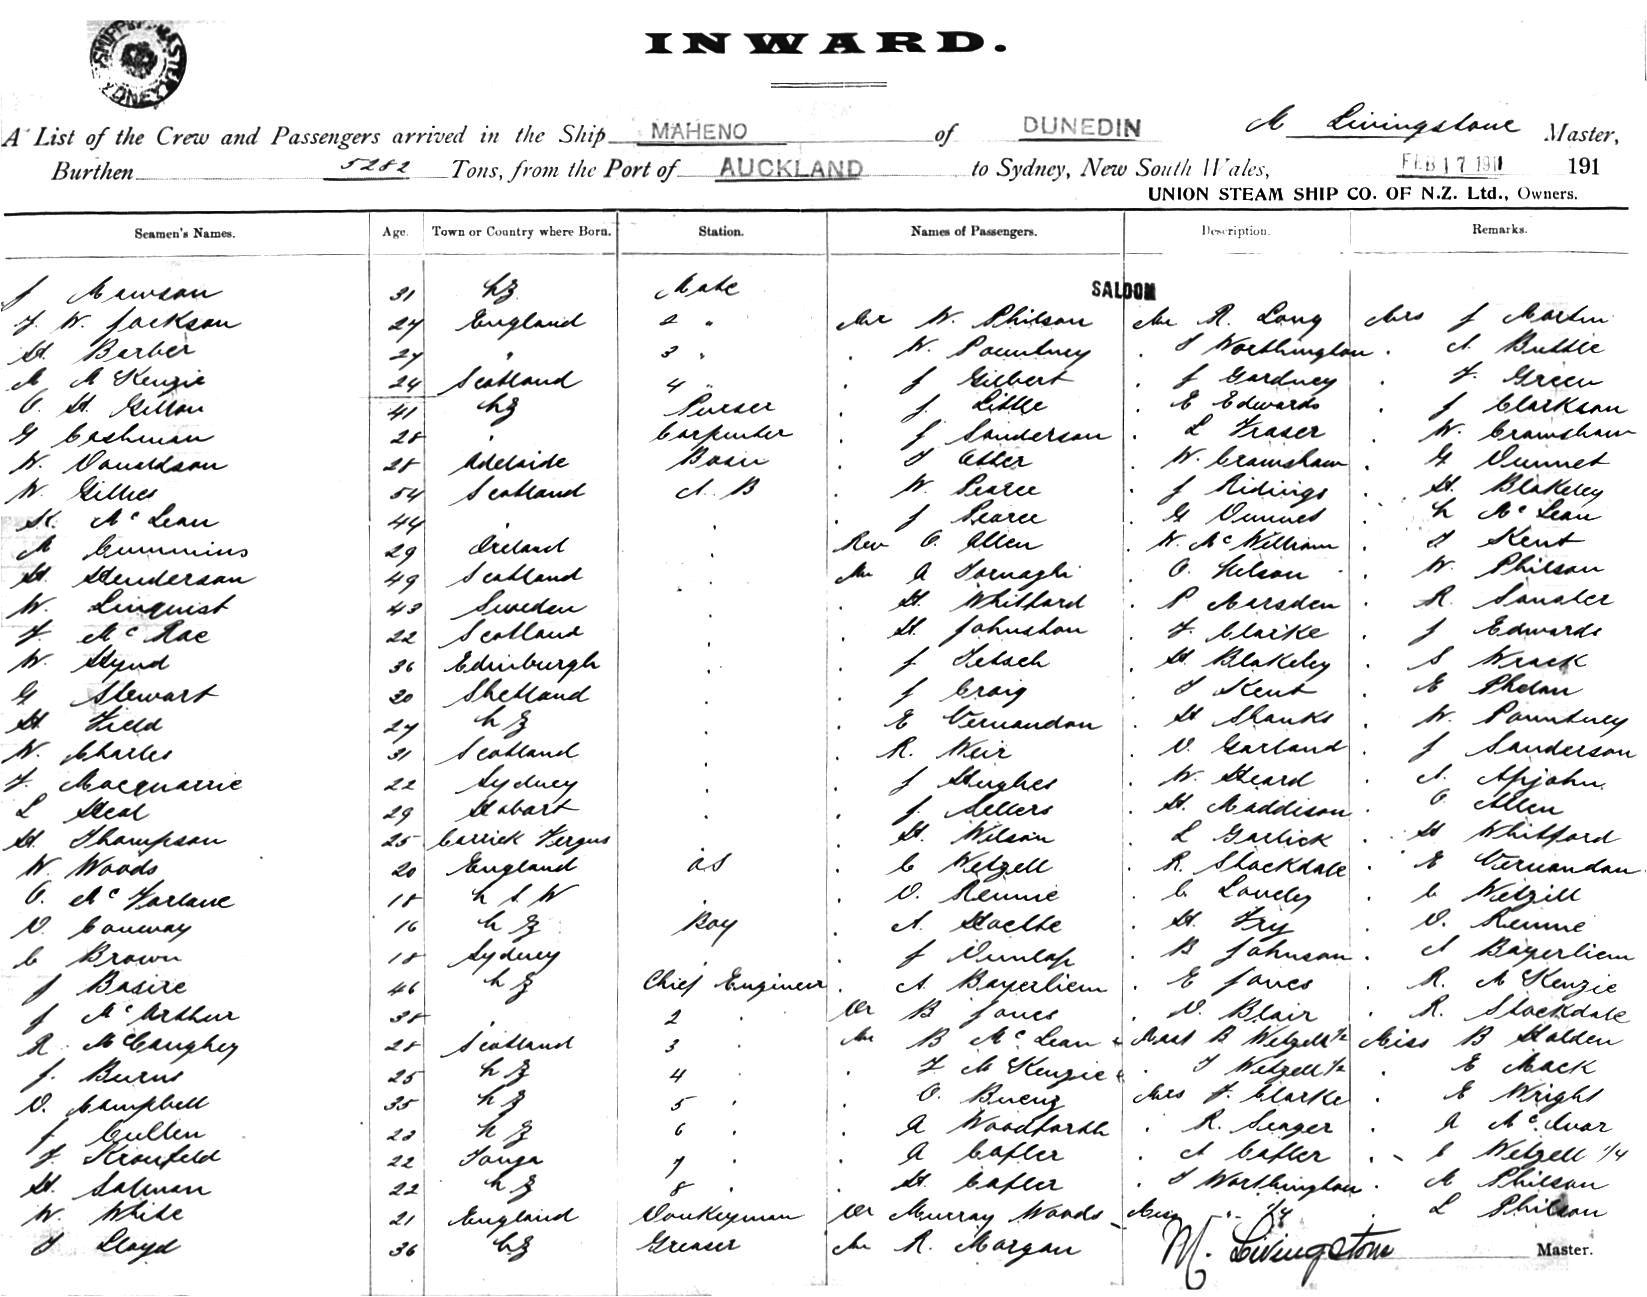 SHIPPING MASTER SYDNEY
INWARD.
A List of the Crew and Passengers arrived in the Ship MAHENO of DUNEDIN M Livingstone Master,
Burthen 5282 Tons, from the Port of AUCKLAND to Sydney, New South Wales, FEB 17 1911 191
UNION STEAM SHIP CO. OF N.Z. Ltd., Owners.
Seamen's Names. Age. Town or Country where Born. Station. Names of Passengers. Description. Remarks.
SALOON
J Mawson 31 NZ Mate
F. W. Jackson 27 England 2 " Mr W. Philson Mr R. Long Mrs J Martin
H. Barber 27 " 3 " . W. Pountney . T Worthington . A. Buttle
M McKenzie 24 Scotland 4 " . J Gilbert . J Gardney . F. Green
C. H. Gillon 41 NZ Purser . J. Little . E Edwards . J Clarkson
G Cashman 28 " Carpenter . J Sanderson . L Fraser . W. Crawshaw
W. Donaldson 28 Adelaide Bosn . T Otter . W. Crawshaw . G Dunnet
W. Gillies 54 Scotland A. B . W. Pearce . J Ridings . H. Blakeley
K. McLean 44 . . . J Pearce . G Dunnet . N McLean
M Cummins 29 Ireland . Rev O. Allen . W. McWilliam . T Kent
H. Henderson 49 Scotland . Mr A Tornaghi . O. Nelson . W. Philson
W. Linquist 43 Sweden . . H. Whitford . P Marsden . R.
F. McRae 22 Scotland . . H. Johnston . F. Clarke . J Edwards
W. Hynd 36 Edinburgh . . J Jetsch . H. Blakeley . S Wrack
G Stewart 20 Shetland . . J Craig . T Kent . E Phelan
H. Field 27 NZ . . E Vernandon . H Shanks . W. Pountney
W. Charles 31 Scotland . . R. Weir . D. Garland . J Sanderson
F. Macquarrie 22 Sydney . . J Hughes . W. Heard . A. Apjohn
L Heal 29 Hobart . . J. Sellers . H. Maddison . O Allen
H. Thompson 25 Carrick Fergus . . H. Wilson . L Garlick . H Whitford
W. Woods 20 England OS . C Wetzell . R. Stockdale . E Vernandon
C. McFarlane 18 N S W . . D. Rennie . C Lovely . C Wetzill
D. Conway 16 NZ Boy . A. Hoelke . H. Fry . D. Rennie
C Brown 18 Sydney . . J Dunlop . B Johnson . A Bayerliem
J Basire 46 NZ Chief Engineer . A. Bayerliem . E Jones . R. McKenzie
J McArthur 38 . 2 . Dr B Jones . D. Blair . R. Stockdale
R. McCaughey 28 Scotland 3 . Mr B McLean Mast B Wetzell 1/2 Miss B Holden
J. Burns 25 NZ 4 . . F McKenzie . T Wetzell 1/2 . E Mack
D. Campbell 35 NZ 5 . . O. Buenz Mrs F. Clarke . E Wright
J Cullen 23 NZ 6 . . A Woodforth . R. Seager . A McIvor
F. Kronfeld 22 Tonga 7 . . A Catler . A. Catler . C Wetzell 1/4
H. Salman 22 NZ 8 . . H. Catler . T Worthington . M Philson
W. White 21 England Donkeyman Dr Murray Woods . L Philson
T Lloyd 36 NZ Greaser Mr R. Morgan M. Livingstone Master.